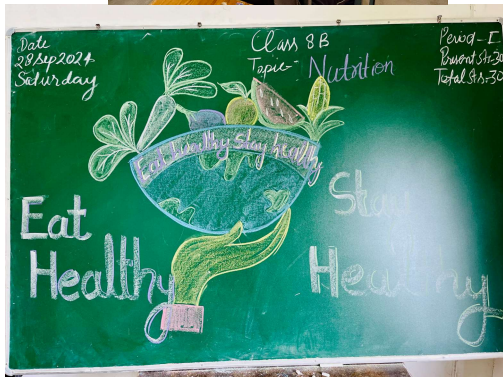 Date
28 Sep 2024
Saturday
Class 8B
Topic - Nutrition
Period - I
Present Sts - 30
Total Sts - 30
Eat healthy stay healthy
Eat
Healthy
Stay
Healthy